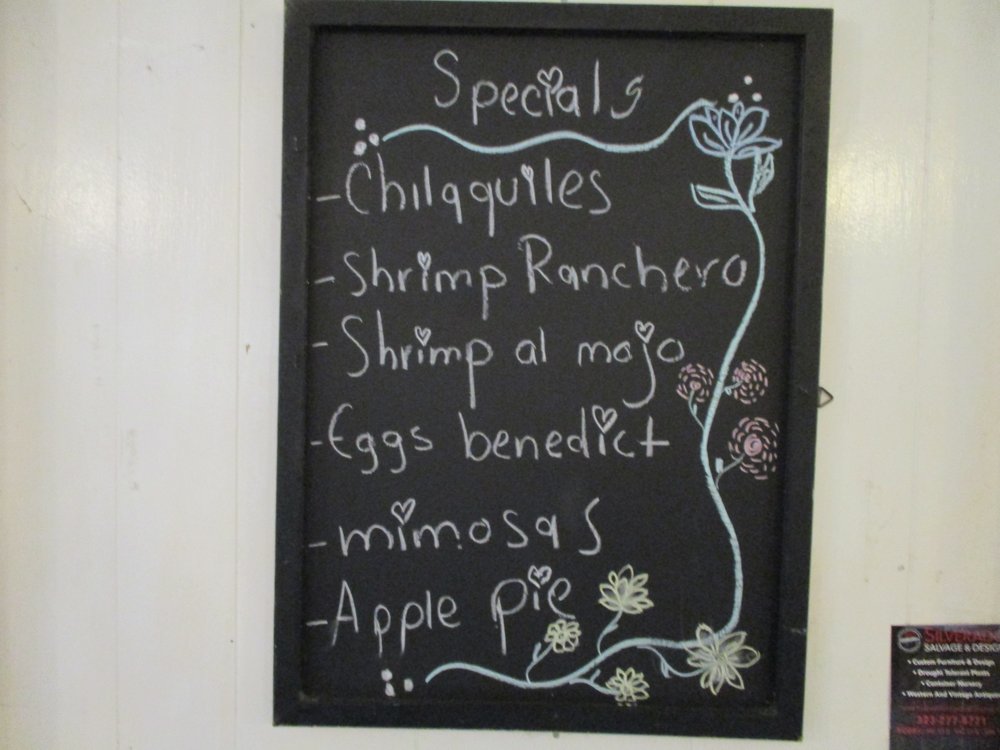 Specials
- Chilaquiles
- Shrimp Ranchero
- Shrimp al mojo
- Eggs benedict
- mimosas
- Apple pie
SALVAGE & DESIGN
• Custom Furniture & Design
• Drought Tolerant Plants
• Container Nursery
• Western And Vintage Antiques
323-277-8721